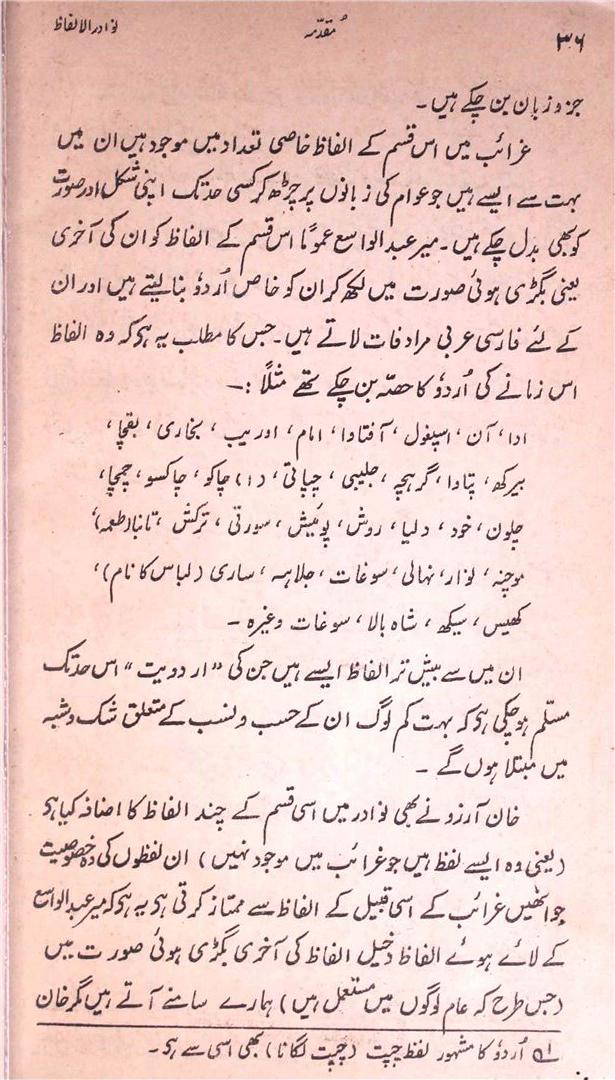 ۳۶ مُقدّمہ نوادر الالفاظ
جزو زبان بن چکے ہیں۔
غرائب میں اس قسم کے الفاظ خاصی تعداد میں موجود ہیں ان میں
بہت سے ایسے ہیں جو عوام کی زبانوں پر چڑھ کر کسی حد تک اپنی شکل اور صورت
کو بھی بدل چکے ہیں۔ میر عبدالواسع عموماً اس قسم کے الفاظ کو ان کی آخری
یعنی بگڑی ہوئی صورت میں لکھ کر ان کو خاص اُردوٗ بنا لیتے ہیں اور ان
کے لئے فارسی عربی مرادفات لاتے ہیں۔ جس کا مطلب یہ ہو کہ وہ الفاظ
اس زمانے کی اُردوٗ کا حصّہ بن چکے تھے مثلاً :۔
ادا، آن، اسپغول، آفتاوا، امام، اوریب، بخاری، بقچا،
بیرکھ، پتاوا، گرہچہ، جلیبی، چپاتی، (۱) چاکو، چاکسو، چمچا،
چلون، خود، دلیا، روش، پوئیش، سورتی، ترکش، تانبا (طعمہ)،
موچنہ، لوار، نہالی، سوغات، جلاہہ، ساری (لباس کا نام)،
کھیس، سیکھ، شاہ بالا، سوغات وغیرہ۔
ان میں سے بیش تر الفاظ ایسے ہیں جن کی "اردویت" اس حد تک
مسلّم ہو چکی ہو کہ بہت کم لوگ ان کے حسب و نسب کے متعلق شک و شبہ
میں مبتلا ہوں گے۔
خان آرزو نے بھی نوادر میں اسی قسم کے چند الفاظ کا اضافہ کیا ہو
(یعنی وہ ایسے لفظ ہیں جو غرائب میں موجود نہیں) ان لفظوں کی وہ خصوصیت
جو انھیں غرائب کے اسی قبیل کے الفاظ سے ممتاز کرتی ہو یہ ہو کہ میر عبدالواسع
کے لائے ہوئے الفاظ دخیل الفاظ کی آخری بگڑی ہوئی صورت میں
(جس طرح کہ عام لوگوں میں مستعمل ہیں) ہمارے سامنے آتے ہیں مگر خان
۱؎ اُردوٗ کا مشہور لفظ چپت (چپت لگانا) بھی اسی سے ہو۔